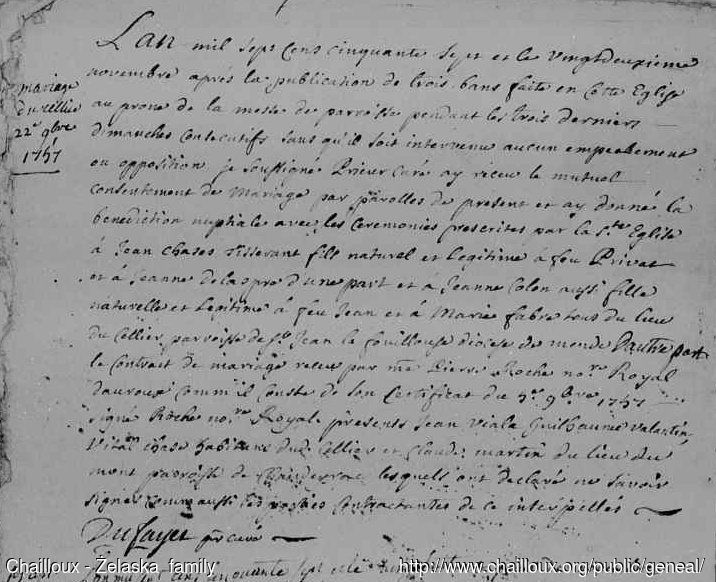 mariage
du cellier
22e 9bre
1757
L'an mil sept Cens cinquante sept et le vingtdeuxieme
novembre après la publication de trois bans faite en Cette Eglise
au prone de la messe de parroisse pendant les trois derniers
dimanches Consecutifs sans qu'il soit intervenu aucun empechement
ou opposition je soussigné Prieur Curé ay receu le mutuel
Consentement de Mariage par parolles de present et ay donné la
benediction nuptiale avec les Ceremonies prescrites par la Ste Eglise
à Jean Chases Tisserant fils naturel et Legitime à feu Privat
et à Jeanne d'une part et à Jeanne Colon aussi fille
naturelle et Legitime à feu Jean et à Marie fabre tous du lieu
du Cellier parroisse de St Jean la fouillouse diocese de mende D'autre part
le Contract de mariage receu par me Pierre Roche nore Royal
d'auroux Comm'il Conste de son Certificat du 9bre 1757
signé Roche nore Royal presents Jean Viala Guilhaume Valantin
Vital Chase habitans dud. Cellier et Claude martin du lieu du
mont parroisse de lesquels ont declaré ne savoir
signer Comme aussi les parties Contractantes de ce interpellés
Dufayet pr Curé
Chailloux - Żelaska family
http://www.chailloux.org/public/geneal/
L'an mil sept cens cinquante sept et le